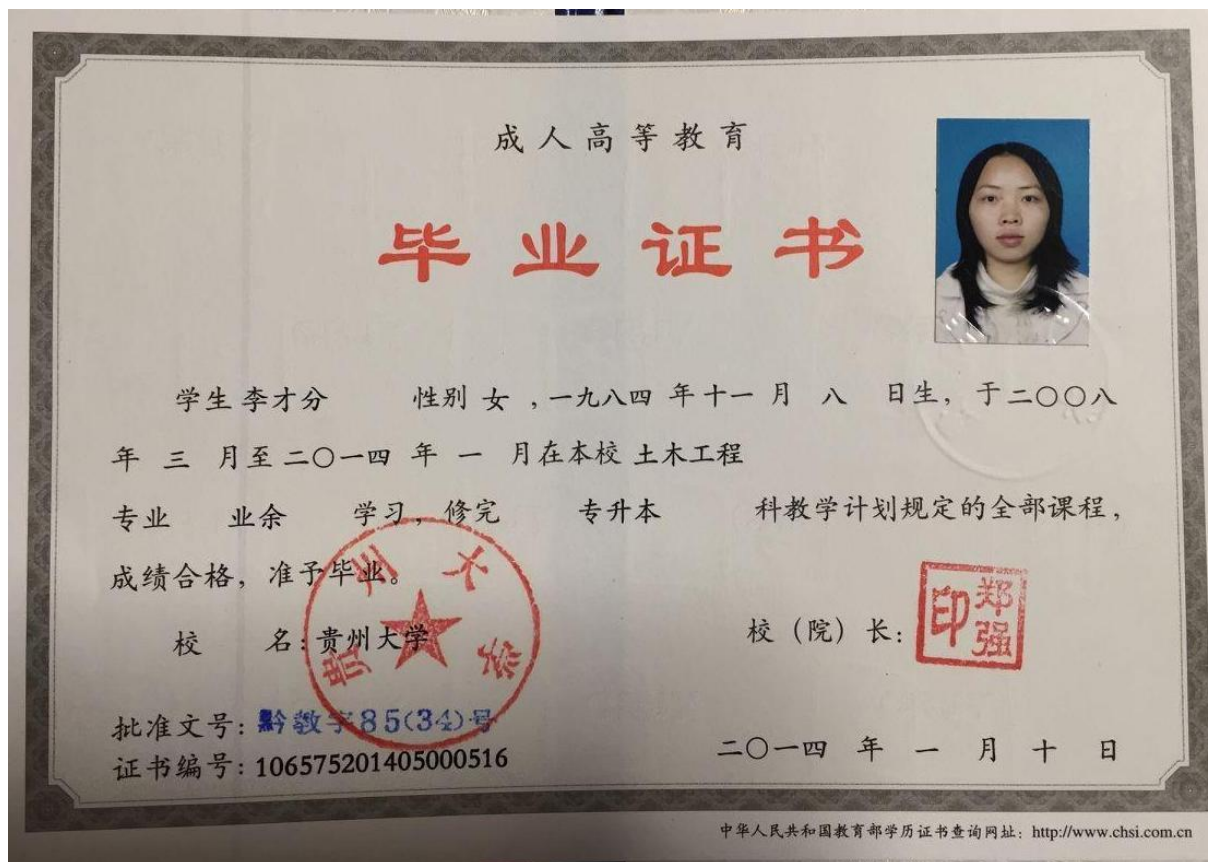 成人高等教育
毕业证书
学生 李才分 性别 女 ,一九八四 年十一 月 八 日生，于二〇〇八
年 三 月至二〇一四 年 一 月在本校 土木工程
专业 业余 学习，修完 专升本 科教学计划规定的全部课程，
成绩合格，准予毕业。
校 名：贵州大学
校（院）长：
郑强印
贵州大学
批准文号：黔教字85(34)号
证书编号：106575201405000516
二〇一四 年 一 月 十 日
中华人民共和国教育部学历证书查询网址：http://www.chsi.com.cn